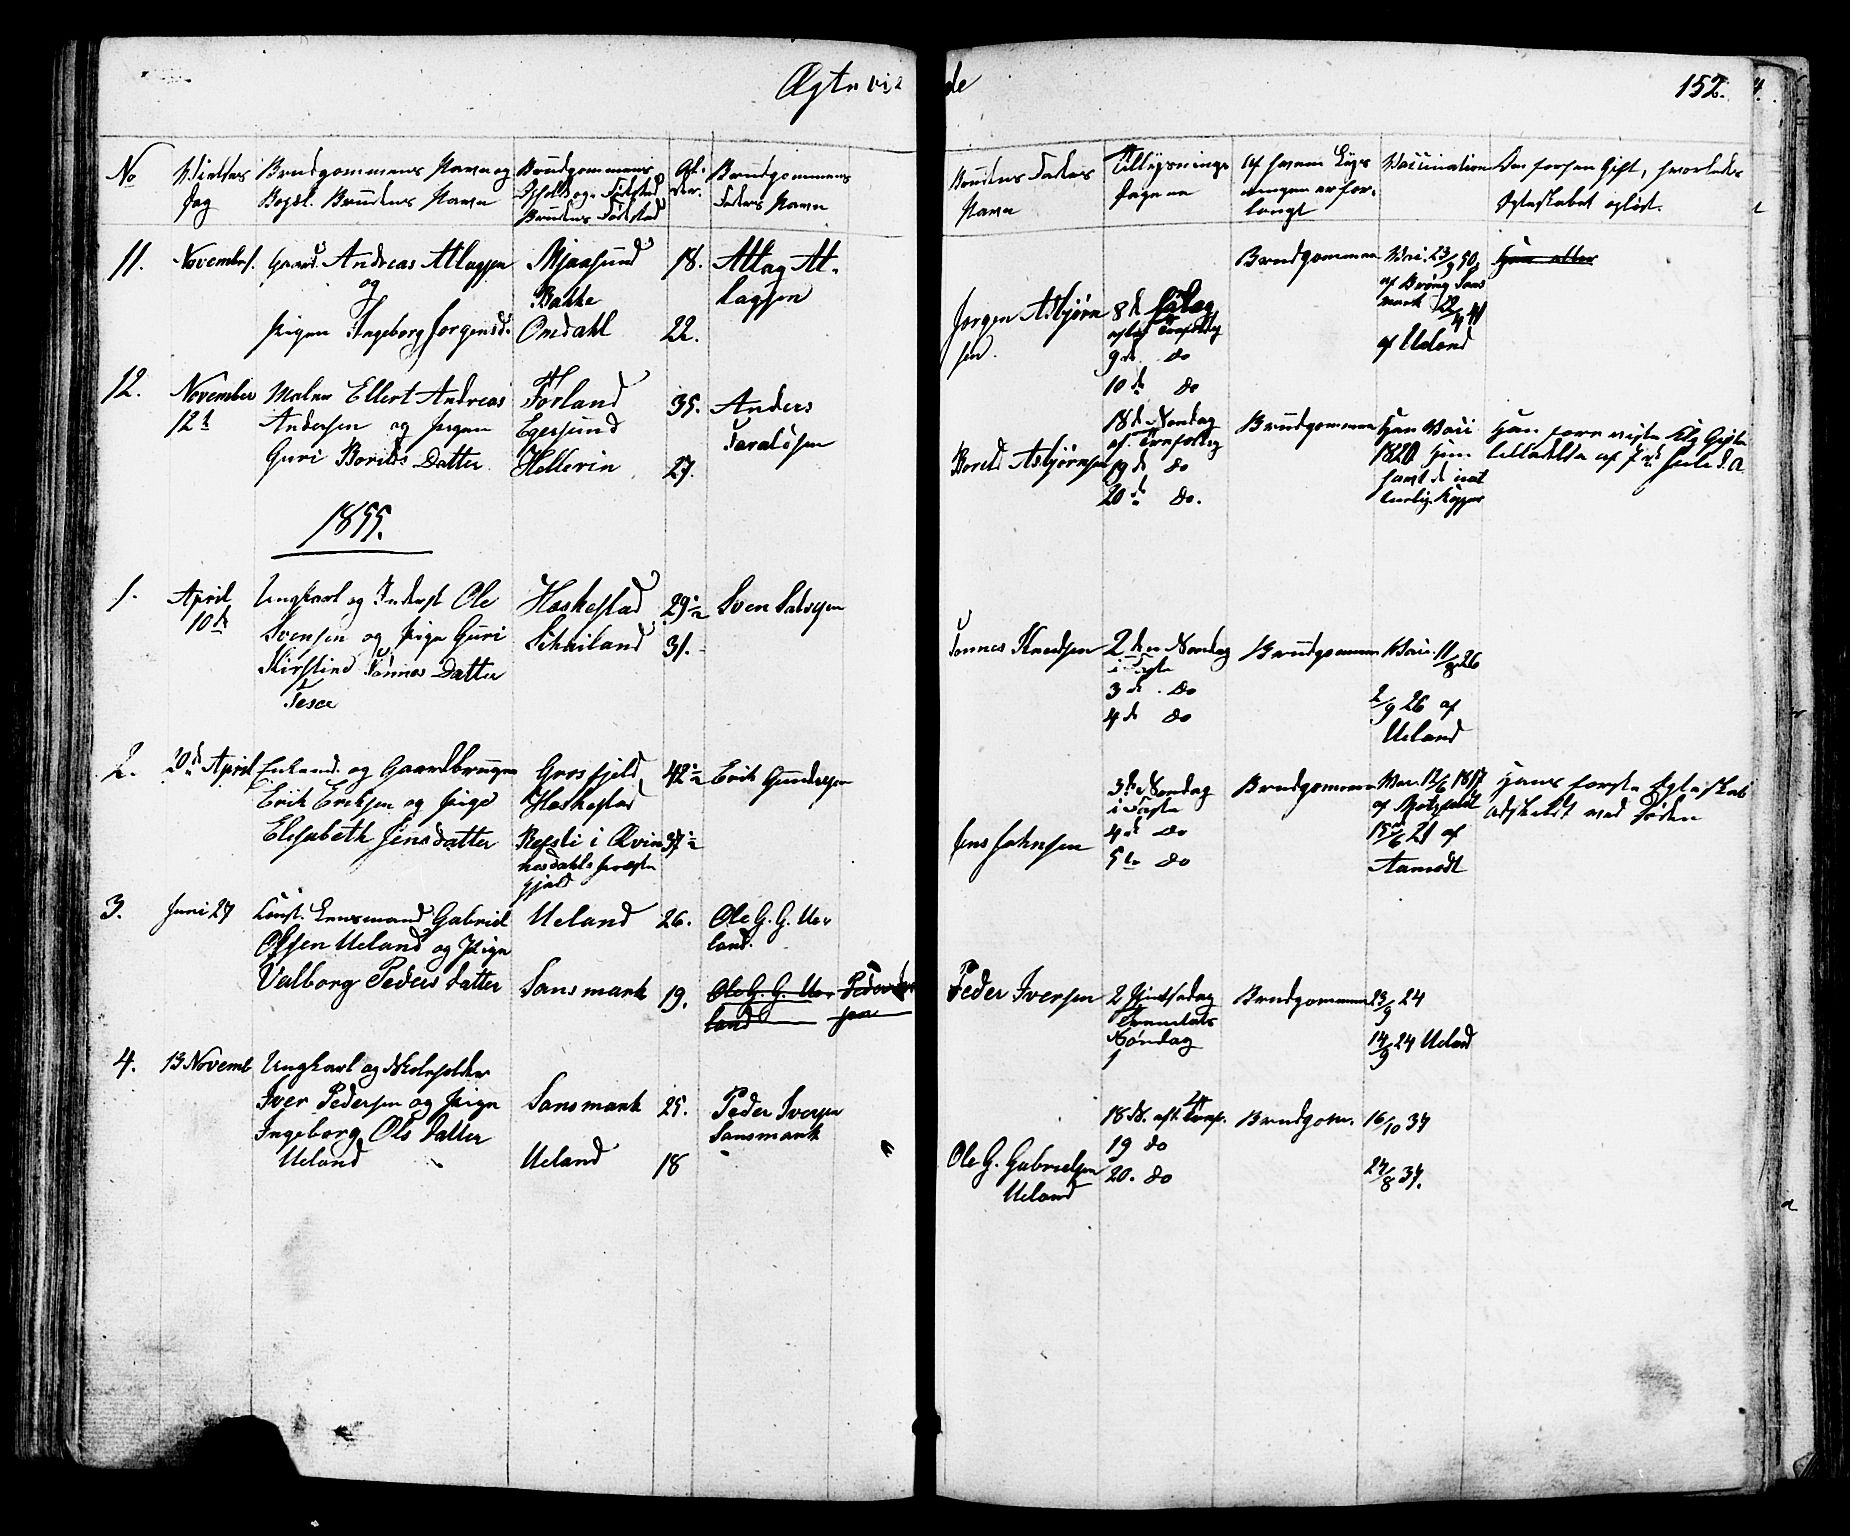 Ægtevi
de
152.
No
Vielses
Dag
Brudgommens Navn og
Bopæl. Brudens Navn
Brudgommens
Opholds og Födested
Brudens Födested
Al-
der.
Brudgommens
Faders Navn
Brudens Faders
Navn
Tillysnings-
Dagene
Af hvem Lys-
ningen er for-
langt
Vaccination
Om forhen Gift, hvorledes
Ægteskabet oplöst.
11.
November.
Andreas Atlagsen
og
Pigen Ingeborg Jorgensd.
Mjaasund
Bakke
Omdahl
18.
22.
Atlag At-
lagsen
Jorgen Asbjörn
sen.
8de
9de do
10de do
Brudgommen
Vaci. 23/9 50.
af
22/9 41
af Ueland
12.
November
12te
Maler Ellert Andreas
Andersen og Pigen
Guri Borildsdatter
Förland
Egersund
Hellerin
35.
27.
Anders
Tarald sen
Borild Asbjörnsen
18de Söndag
af. Trefoldig
19de do
20de do.
Brudgommen
Han Vaci
1820 Hun
havt de nat
turlige Kopper
Han foreviste Klg Gifte
tilladelse af
1855.
1.
April
10de
Ungkarl og Inderst Ole
Svensen og Pige Guri
Kirstine Tönnes Datter
Hæskestad
Skailand
29 1/2
31.
Sven Salvesen
Tonnes Knudsen
2den Söndag
i Faste
3de do
4de do
Brudgommen
Vaci. 11/8 26
2/9 26 af
Ueland
2.
20de April
Enkemd. og Gaardbruger
Erik Eriksen og Pige
Elisabeth Jensdatter
Grosfjeld,
Hæskestad
Refsli i Qvin
hersdahls Præste
gjeld
42 1/2
37 1/2
Erik Gundersen
Jens Johnsen
3de Söndag
i Faste
4de do
5te do
Brudgommen
Vac. 12/6 1817
af
15/6 21 af
Aamodt
Hans forste Ægteskab
adskildt ved Döden
3.
Juni 27
Const. Lensmand Gabriel
Olsen Ueland og Pige
Valborg Peders datter
Ueland
Sansmark
26.
19.
Ole G. G. Ue-
land.
Ole G. G. Ue-
land
Peder Iversen
2 Pintsedag
Trinitatis
Söndag
1
Brudgommen
23/9 24
14/9 24 Ueland
4.
13 Novemb
Ungkarl og Skoleholder
Iver Pedersen og Pige
Ingeborg Ols datter
Ueland
Sansmark
Ueland
25.
18
Peder Iversen
Sansmark
Ole G. Gabrielsen
Ueland
18de. eft. Tref.
19 do
20. do
Brudgom.
16/10 34
24/8 37.